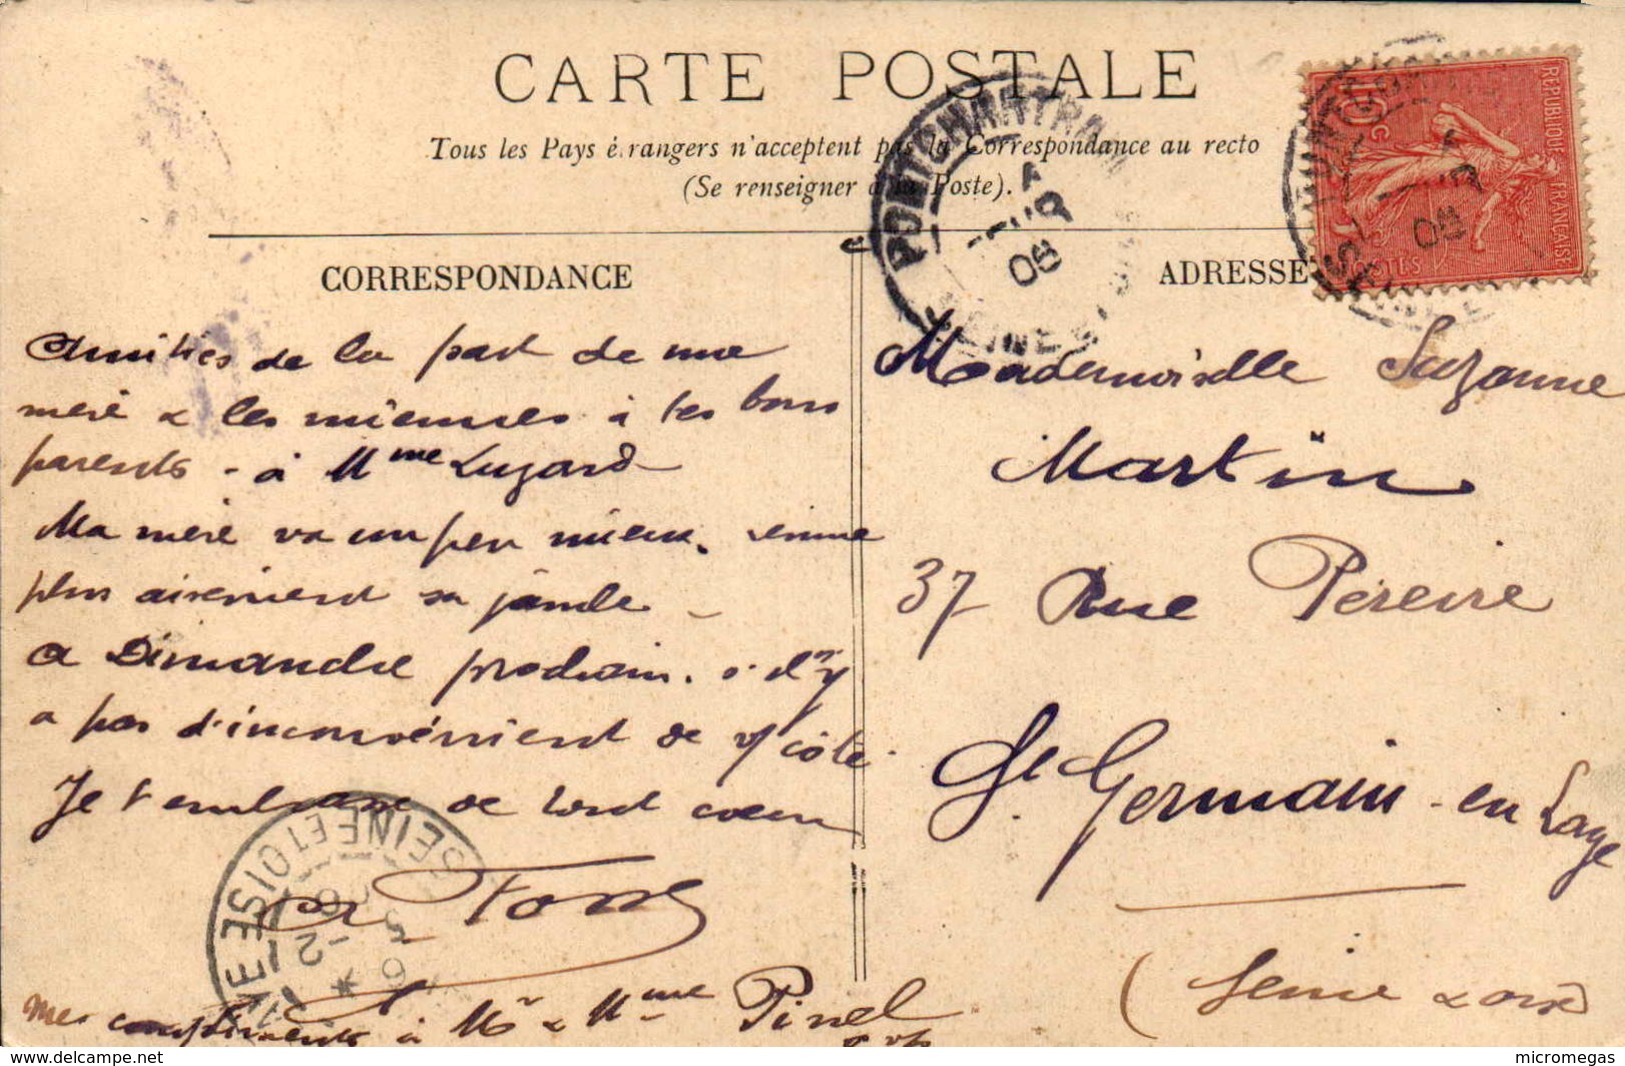 CARTE POSTALE
Tous les Pays étrangers n'acceptent pas la Correspondance au recto
(Se renseigner à la Poste).
CORRESPONDANCE
ADRESSE
REPUBLIQUE FRANÇAISE
10 c
POSTES
PONTCHARTRAIN
SEINE ET OISE
08
SEINE ET OISE
Amitiés de la part de ma
mère & les miennes à tes bons
parents - à Mme Luzard
Ma mère va un peu mieux, remue
plus aisément sa jambe -
a Dimanche prochain. s'il n'y
a pas d'inconvénient de v/ côté
Je t'embrasse de tout coeur
Mes compliments à Mr & Mme Pinel
Mademoiselle Suzanne
Martin
37 Rue Péreire
St. Germain - en Laye
(Seine & Oise)
delcampe.net
micromegas